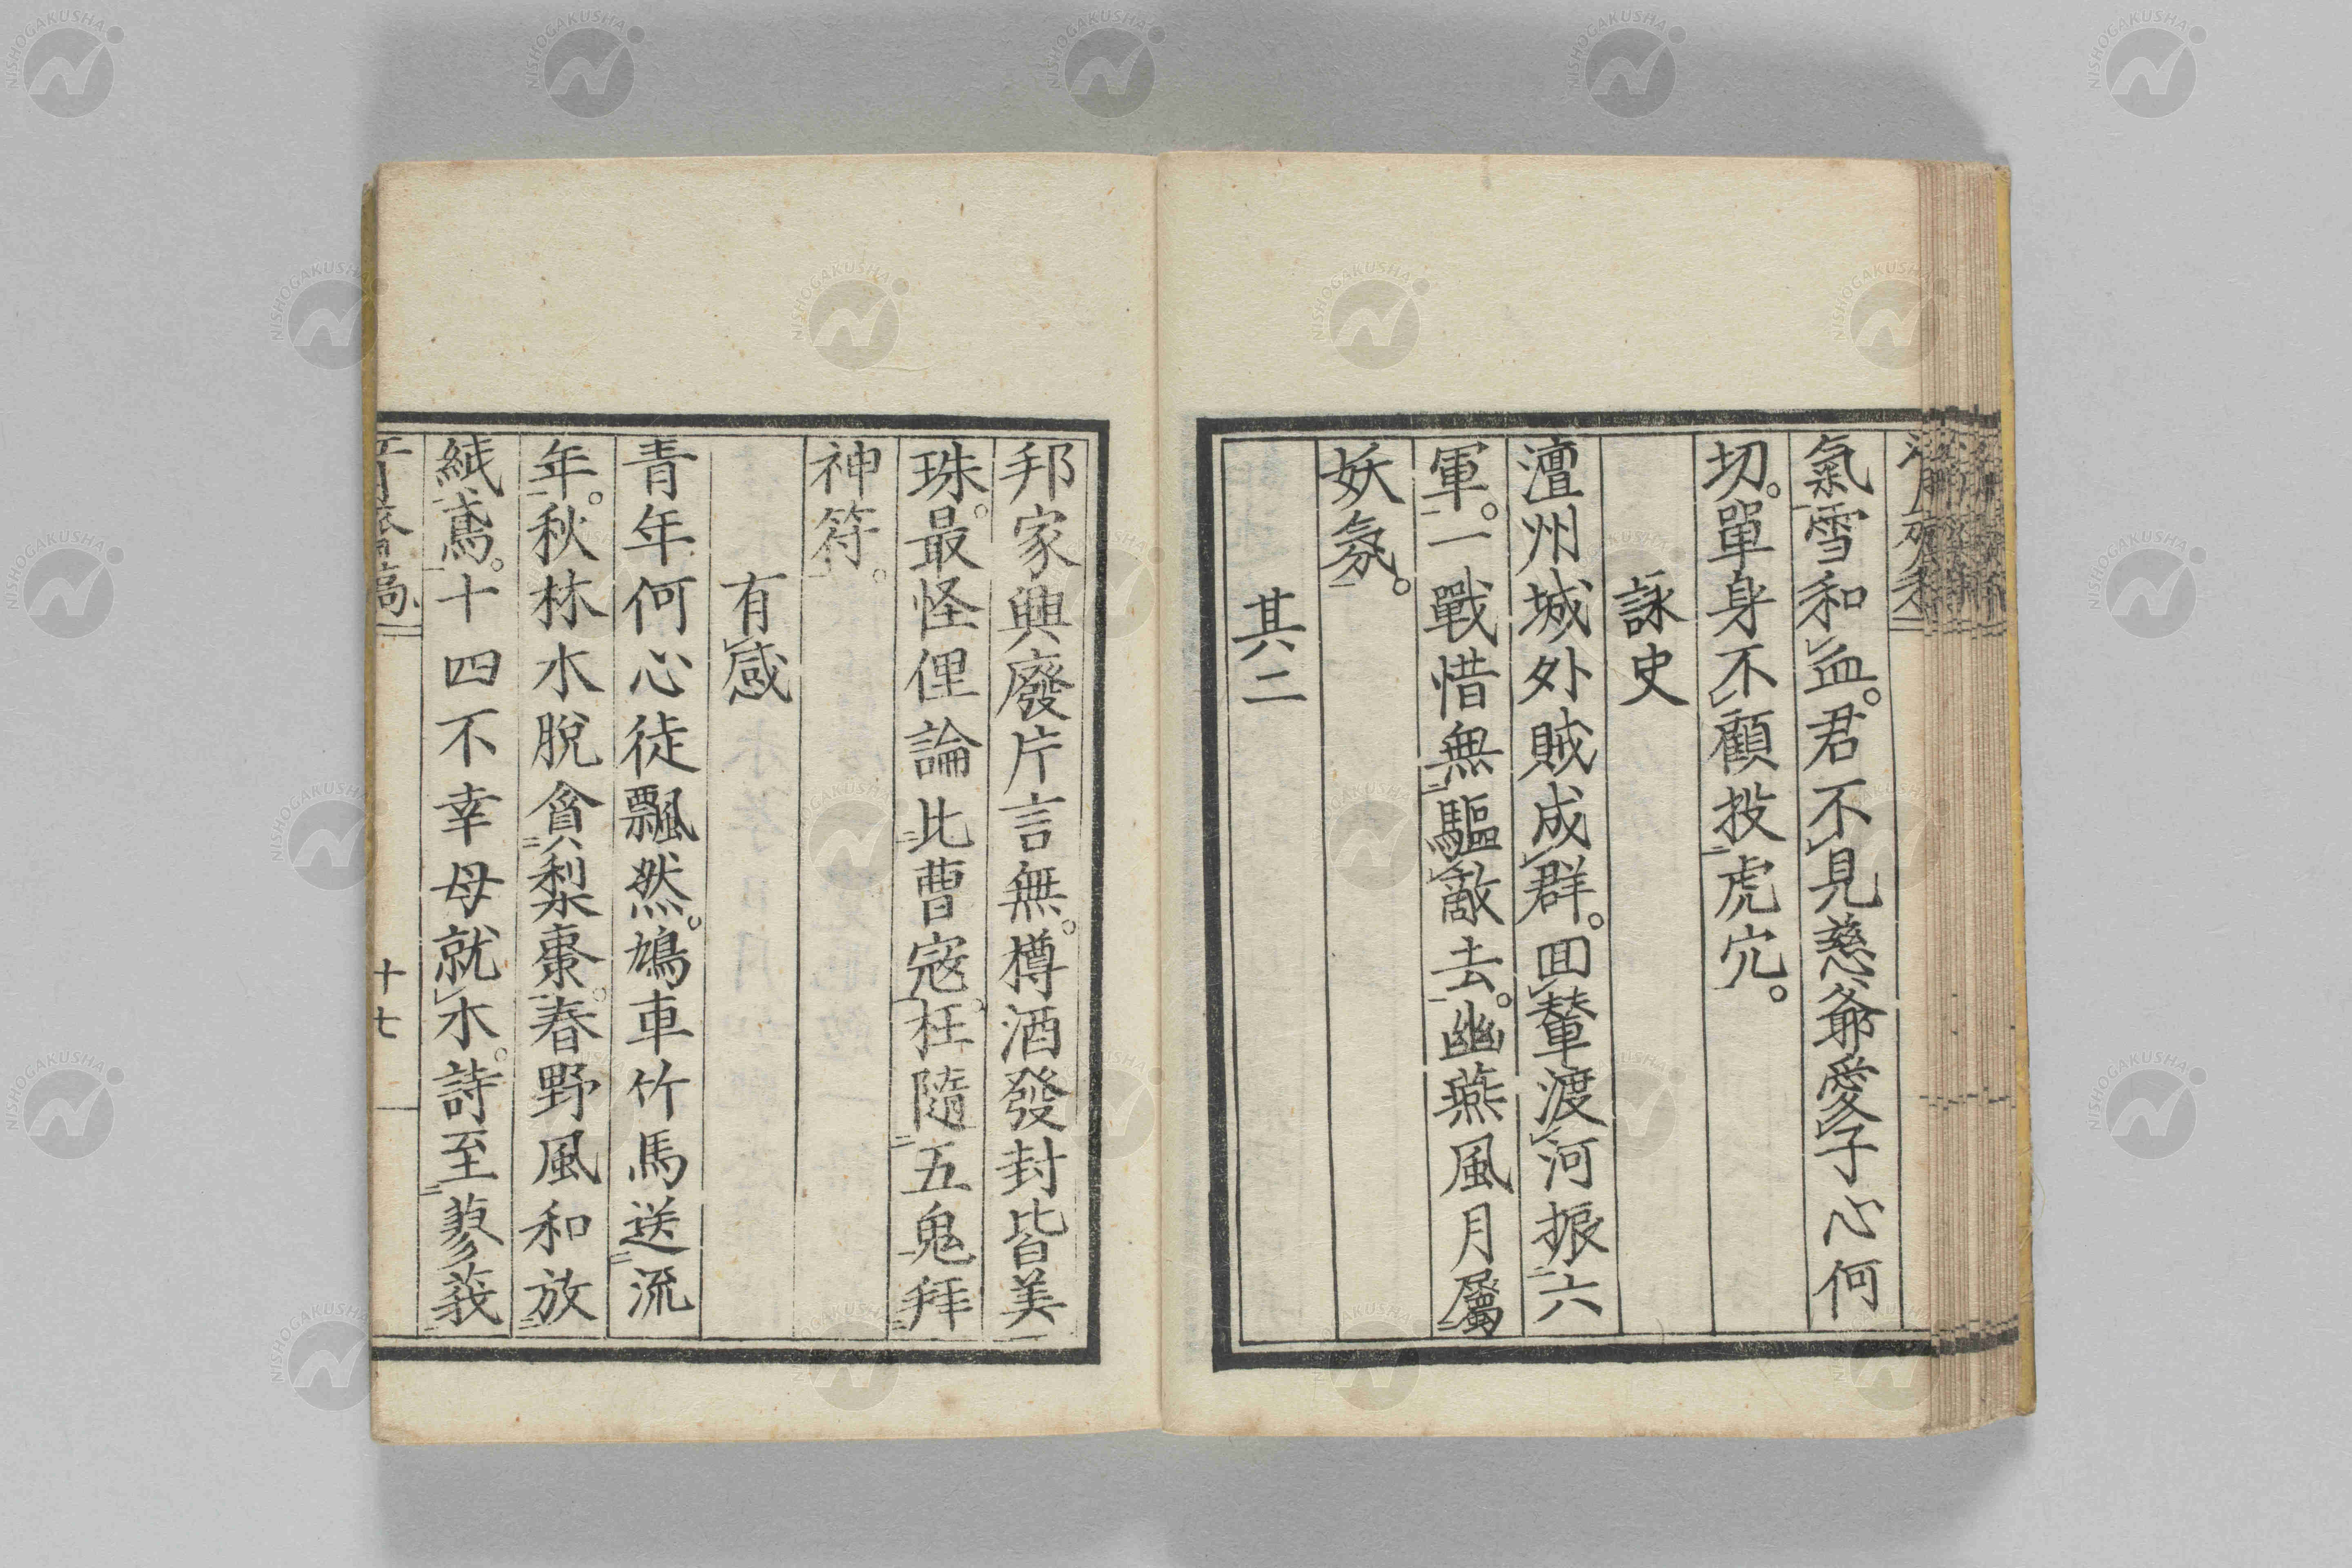 氣雪和血。君不見慈爺愛子心何
切。單身不顧投虎穴。
詠史
澶州城外賊成群。回輦渡河振六
軍。一戰惜無驅敵去。幽燕風月屬
妖氛。
其二
邦家興廢片言無。樽酒發封皆美
珠。最怪俚論比曹寇。枉隨五鬼拜
神符。
有感
青年何心徒飄然。鳩車竹馬送流
年。秋林水脫貪梨棗。春野風和放
紙鳶。十四不幸母就木。詩至蓼莪
十七
NISHOGAKUSHA